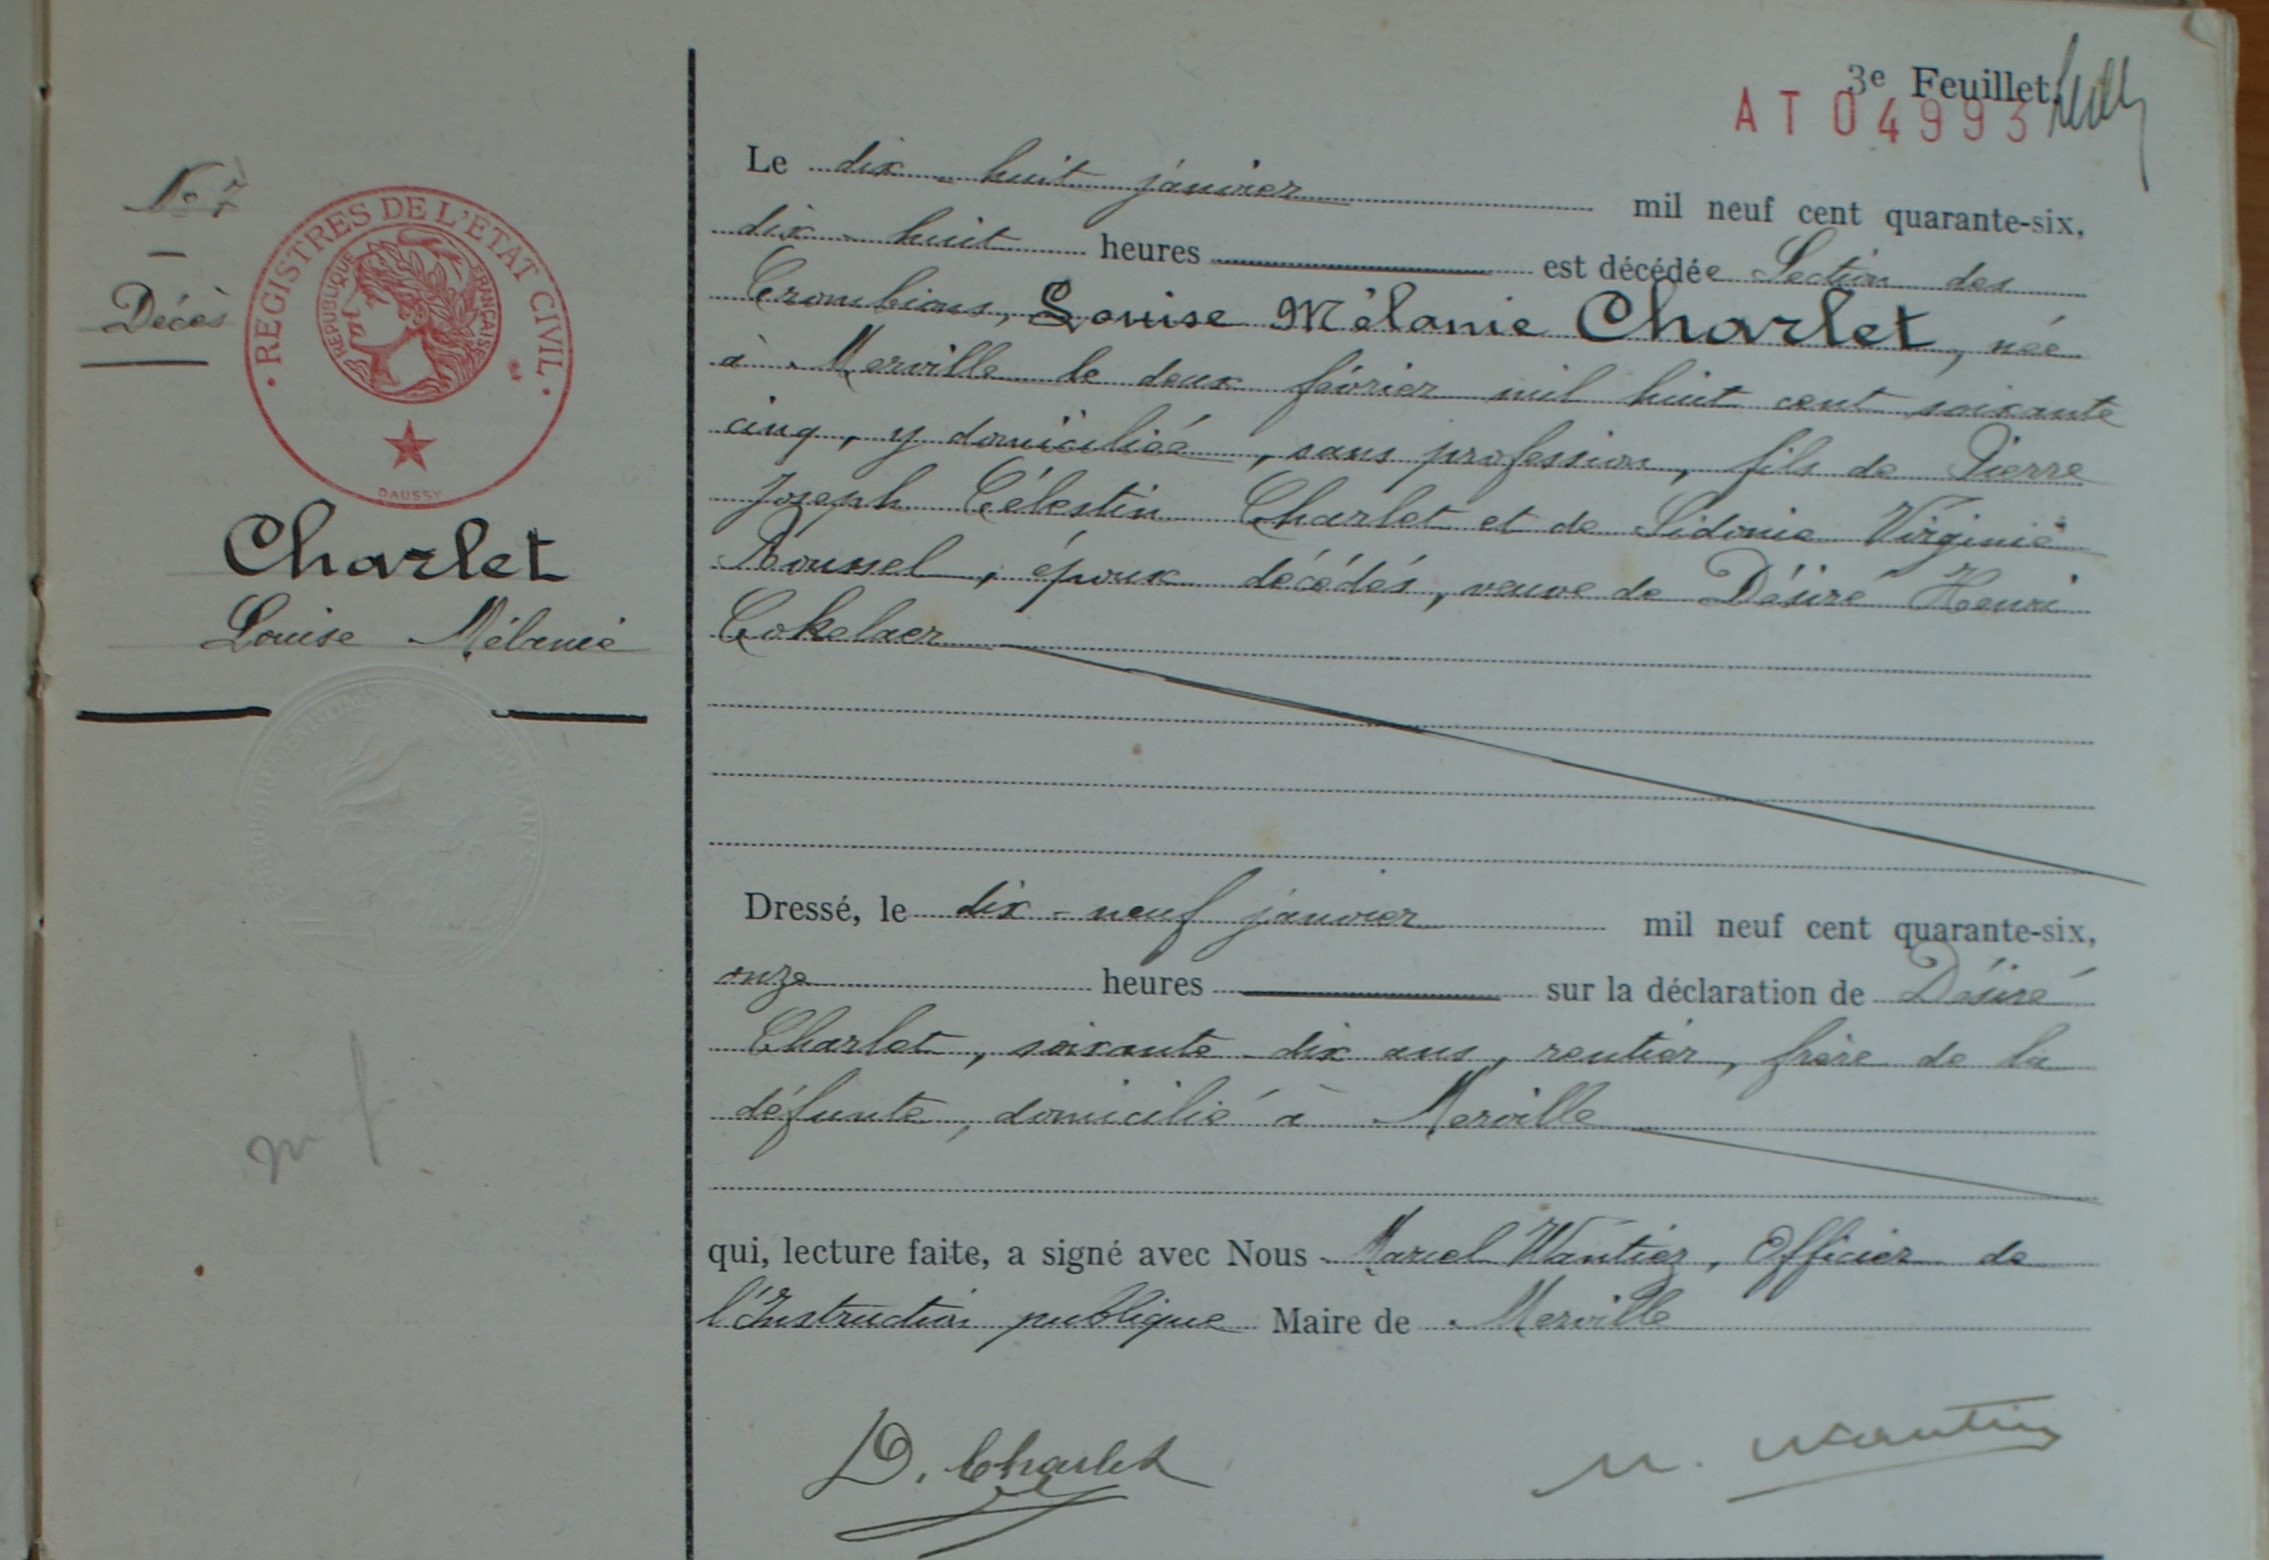 3e Feuillet
AT 04993
No 7
Décès
REGISTRES DE L'ETAT CIVIL
REPUBLIQUE FRANÇAISE
DAUSSY
Charlet
Louise Mélanie
Le dix-huit janvier mil neuf cent quarante-six,
dix-huit heures est décédée Section des
Crombions, Louise Mélanie Charlet, née
à Merville le deux février mil huit cent soixante
cinq, y domiciliée, sans profession, fils de Pierre
Joseph Célestin Charlet et de Sidonie Virginie
Roussel, époux décédés, veuve de Désiré Henri
Cokelaer
Dressé, le dix-neuf janvier mil neuf cent quarante-six,
onze heures sur la déclaration de Désiré
Charlet, soixante-dix ans, rentier, frère de la
défunte, domicilié à Merville
qui, lecture faite, a signé avec Nous Marcel Wantiez, Officier de
l'Instruction publique Maire de Merville
D. Charlet
M. Wantiez